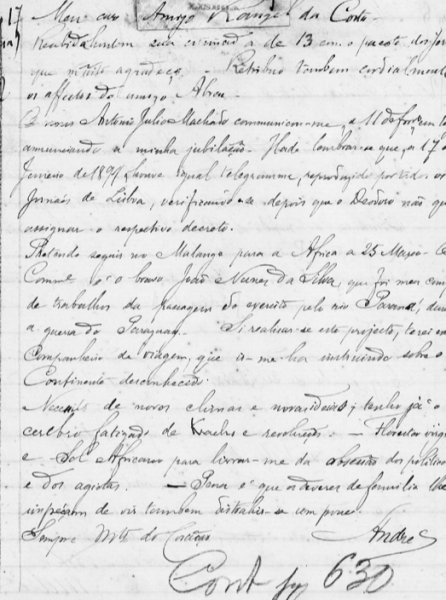 17 Meu caro Amigo Rangel da Costa
Recebida tambem sua estimada de 13 com o pacote dos
que muito agradeço. Retribuo tambem cordialmente
os affectos do amigo Abreu.
O nosso Antonio Julio Machado communicou-me, a 11 de
annunciando a minha jubilação. Hade lembrar-se que, a 17 de
Janeiro de houve igual telegramma, reproduzido por todos os
Jornaes de Lisboa, verificando-se depois que o Deodoro não
assignar o respectivo decreto.
Pretendo seguir no Malange para a Africa a 25 Março. O
Comm.te é o bravo João Nunes da Silva, que foi meu
de trabalhos da passagem do exercito pelo rio Paraná,
a guerra do Paraguay. Si realisar-se este projecto, terei
Companheiro de viagem, que ir-me-ha instruindo sobre o
Continente desconhecido.
Necessito de novos climas e novas ideias; tenho já o
cerebro fatigado de e revoluções. — Florestas
e Sol Africano para livrar-me da dos politicos
e dos agiotas. — Pena é que os deveres de familia
de vir tambem distrahir-se um pouco.
Sempre Mtt do Coração André
Cont 630